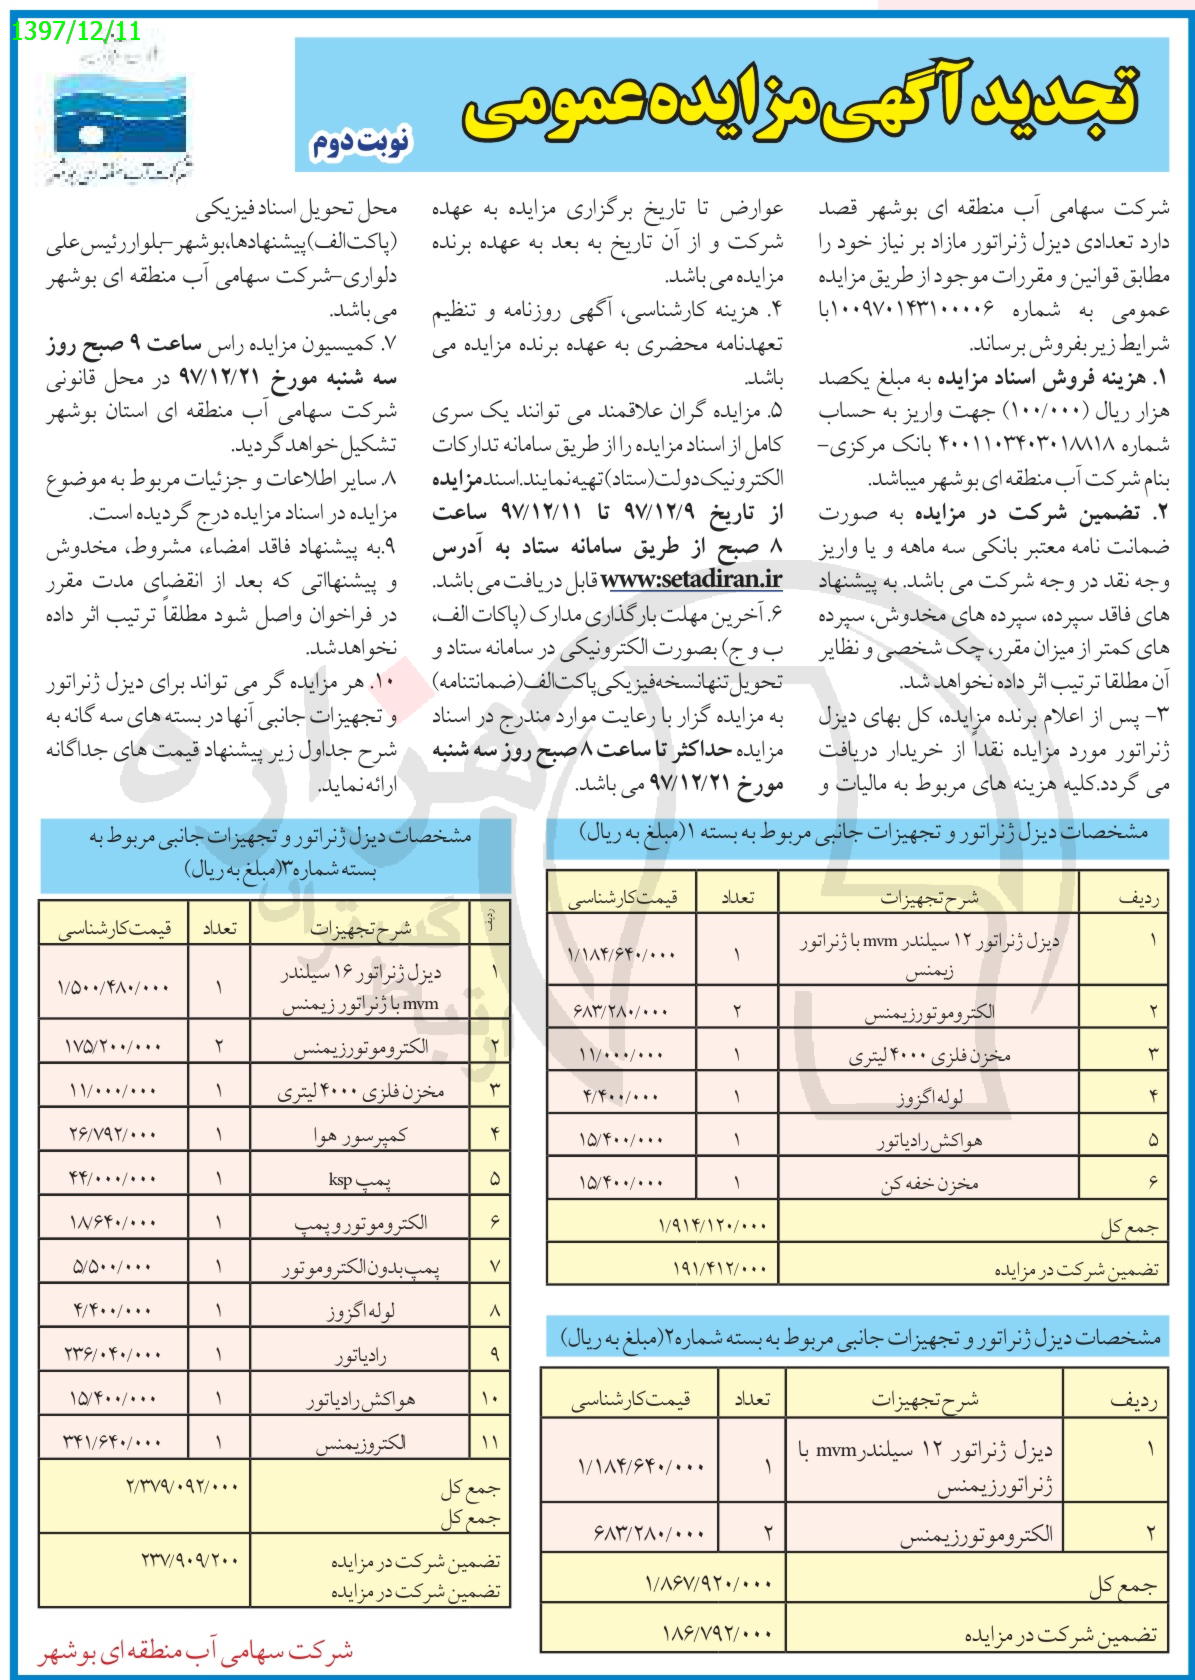 1397/12/11
تجدید آگهی مزایده عمومی
نوبت دوم
شرکت آب منطقه ای بوشهر
شرکت سهامی آب منطقه ای بوشهر قصد
دارد تعدادی دیزل ژنراتور مازاد بر نیاز خود را
مطابق قوانین و مقررات موجود از طریق مزایده
عمومی به شماره ۱۰۰۹۷۰۱۴۳۱۰۰۰۰۶با
شرایط زیر بفروش برساند.
۱. هزینه فروش اسناد مزایده به مبلغ یکصد
هزار ریال (۱۰۰/۰۰۰) جهت واریز به حساب
شماره ۴۰۰۱۱۰۳۴۰۳۰۱۸۸۱۸ بانک مرکزی-
بنام شرکت آب منطقه ای بوشهر میباشد.
۲. تضمین شرکت در مزایده به صورت
ضمانت نامه معتبر بانکی سه ماهه و یا واریز
وجه نقد در وجه شرکت می باشد. به پیشنهاد
های فاقد سپرده، سپرده های مخدوش، سپرده
های کمتر از میزان مقرر، چک شخصی و نظایر
آن مطلقا ترتیب اثر داده نخواهد شد.
۳- پس از اعلام برنده مزایده، کل بهای دیزل
ژنراتور مورد مزایده نقداً از خریدار دریافت
می گردد.کلیه هزینه های مربوط به مالیات و
عوارض تا تاریخ برگزاری مزایده به عهده
شرکت و از آن تاریخ به بعد به عهده برنده
مزایده می باشد.
۴. هزینه کارشناسی، آگهی روزنامه و تنظیم
تعهدنامه محضری به عهده برنده مزایده می
باشد.
۵. مزایده گران علاقمند می توانند یک سری
کامل از اسناد مزایده را از طریق سامانه تدارکات
الکترونیک دولت (ستاد) تهیه نمایند.اسند مزایده
از تاریخ ۹۷/۱۲/۹ تا ۹۷/۱۲/۱۱ ساعت
۸ صبح از طریق سامانه ستاد به آدرس
www:setadiran.ir قابل دریافت می باشد.
۶. آخرین مهلت بارگذاری مدارک (پاکات الف،
ب و ج) بصورت الکترونیکی در سامانه ستاد و
تحویل تنها نسخه فیزیکی پاکت الف (ضمانتنامه)
به مزایده گزار با رعایت موارد مندرج در اسناد
مزایده حداکثر تا ساعت ۸ صبح روز سه شنبه
مورخ ۹۷/۱۲/۲۱ می باشد.
محل تحویل اسناد فیزیکی
(پاکت الف) پیشنهادها،بوشهر-بلوار رئیس علی
دلواری-شرکت سهامی آب منطقه ای بوشهر
می باشد.
۷. کمیسیون مزایده راس ساعت ۹ صبح روز
سه شنبه مورخ ۹۷/۱۲/۲۱ در محل قانونی
شرکت سهامی آب منطقه ای استان بوشهر
تشکیل خواهد گردید.
۸. سایر اطلاعات و جزئیات مربوط به موضوع
مزایده در اسناد مزایده درج گردیده است.
۹.به پیشنهاد فاقد امضاء، مشروط، مخدوش
و پیشنهااتی که بعد از انقضای مدت مقرر
در فراخوان واصل شود مطلقاً ترتیب اثر داده
نخواهد شد.
۱۰. هر مزایده گر می تواند برای دیزل ژنراتور
و تجهیزات جانبی آنها در بسته های سه گانه به
شرح جداول زیر پیشنهاد قیمت های جداگانه
ارائه نماید.
مشخصات دیزل ژنراتور و تجهیزات جانبی مربوط به بسته ۱(مبلغ به ریال)
ردیف شرح تجهیزات تعداد قیمت کارشناسی
۱ دیزل ژنراتور ۱۲ سیلندر mvm با ژنراتور ۱ ۱/۱۸۴/۶۴۰/۰۰۰
زیمنس
۲ الکتروموتورزیمنس ۲ ۶۸۳/۲۸۰/۰۰۰
۳ مخزن فلزی ۴۰۰۰ لیتری ۱ ۱۱/۰۰۰/۰۰۰
۴ لوله اگزوز ۱ ۴/۴۰۰/۰۰۰
۵ هواکش رادیاتور ۱ ۱۵/۴۰۰/۰۰۰
۶ مخزن خفه کن ۱ ۱۵/۴۰۰/۰۰۰
جمع کل ۱/۹۱۴/۱۲۰/۰۰۰
تضمین شرکت در مزایده ۱۹۱/۴۱۲/۰۰۰
مشخصات دیزل ژنراتور و تجهیزات جانبی مربوط به بسته شماره۲(مبلغ به ریال)
ردیف شرح تجهیزات تعداد قیمت کارشناسی
۱ دیزل ژنراتور ۱۲ سیلندرmvm با ۱ ۱/۱۸۴/۶۴۰/۰۰۰
ژنراتورزیمنس
۲ الکتروموتورزیمنس ۲ ۶۸۳/۲۸۰/۰۰۰
جمع کل ۱/۸۶۷/۹۲۰/۰۰۰
تضمین شرکت در مزایده ۱۸۶/۷۹۲/۰۰۰
مشخصات دیزل ژنراتور و تجهیزات جانبی مربوط به
بسته شماره۳(مبلغ به ریال)
ردیف شرح تجهیزات تعداد قیمت کارشناسی
۱ دیزل ژنراتور ۱۶ سیلندر ۱ ۱/۵۰۰/۴۸۰/۰۰۰
mvm با ژنراتور زیمنس
۲ الکتروموتورزیمنس ۲ ۱۷۵/۲۰۰/۰۰۰
۳ مخزن فلزی ۴۰۰۰ لیتری ۱ ۱۱/۰۰۰/۰۰۰
۴ کمپرسور هوا ۱ ۲۶/۷۹۲/۰۰۰
۵ پمپ ksp ۱ ۴۴/۰۰۰/۰۰۰
۶ الکتروموتور و پمپ ۱ ۱۸/۶۴۰/۰۰۰
۷ پمپ بدون الکتروموتور ۱ ۵/۵۰۰/۰۰۰
۸ لوله اگزوز ۱ ۴/۴۰۰/۰۰۰
۹ رادیاتور ۱ ۲۳۶/۰۴۰/۰۰۰
۱۰ هواکش رادیاتور ۱ ۱۵/۴۰۰/۰۰۰
۱۱ الکتروزیمنس ۱ ۳۴۱/۶۴۰/۰۰۰
جمع کل ۲/۳۷۹/۰۹۲/۰۰۰
جمع کل
تضمین شرکت در مزایده ۲۳۷/۹۰۹/۲۰۰
تضمین شرکت در مزایده
شرکت سهامی آب منطقه ای بوشهر
هزاره